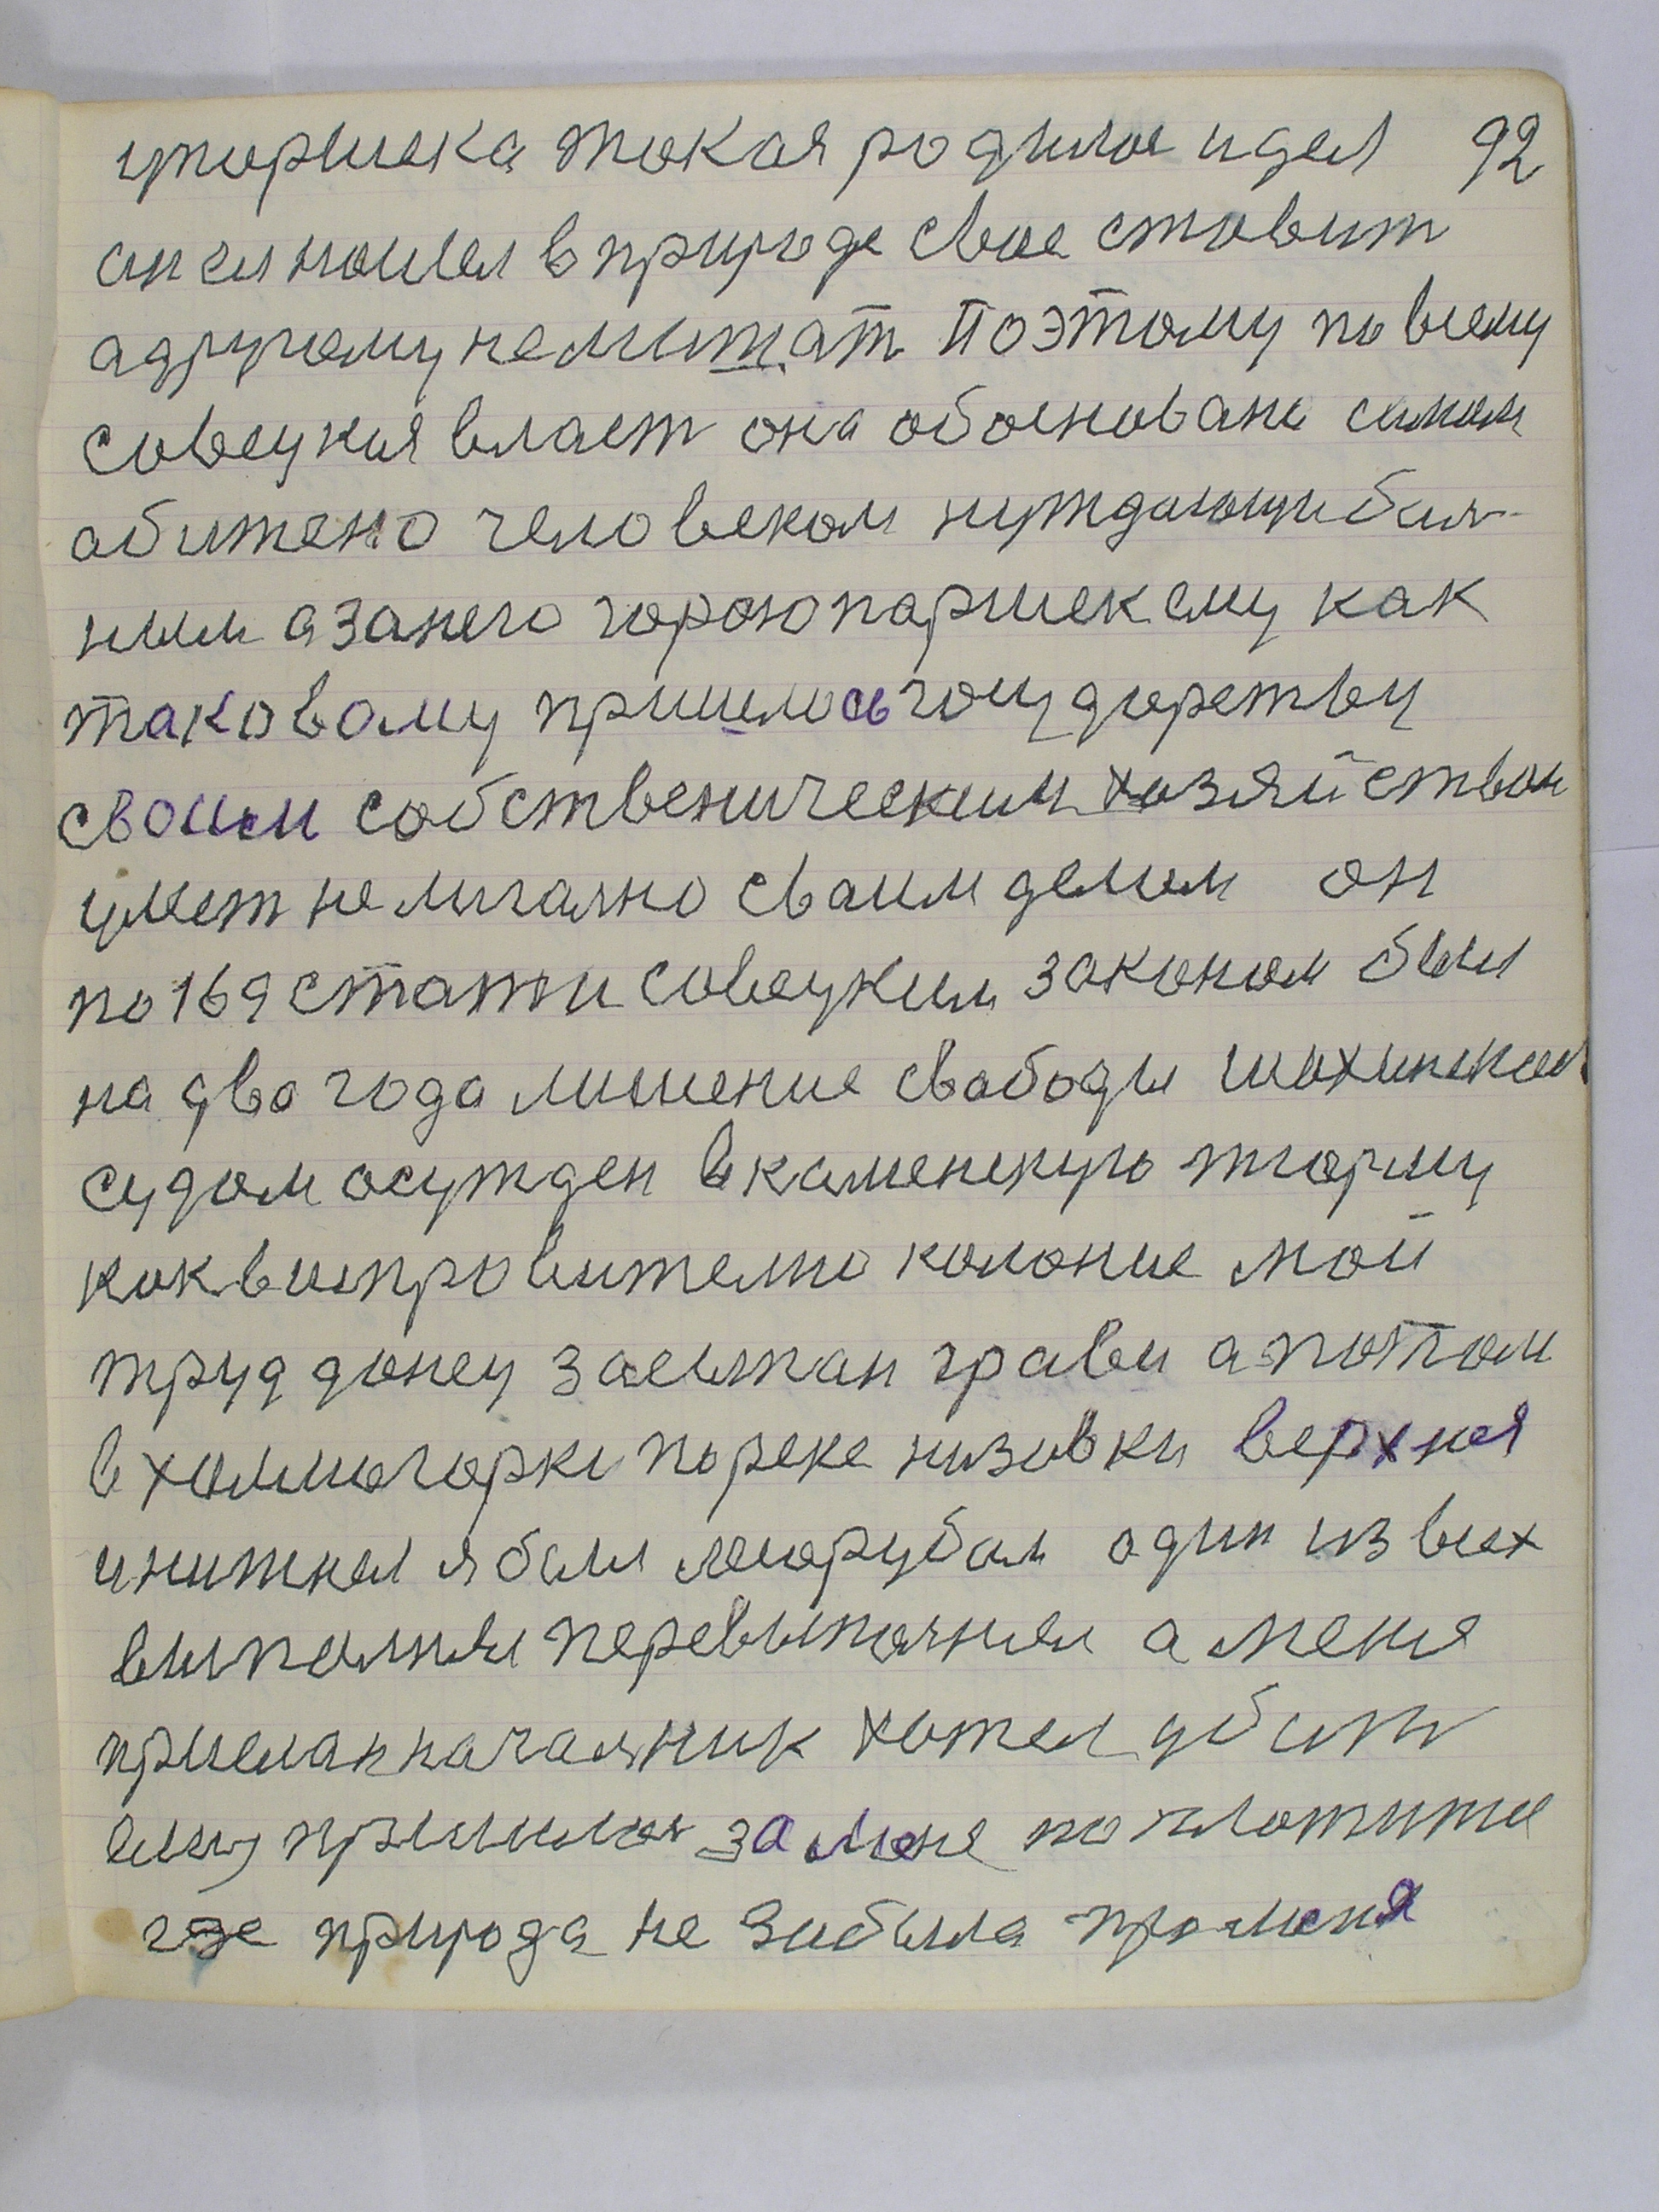 уторшека такая родилас идея 92
он ея нашел в природе свое ставит
а другому немишат Поэтому по всему
совецкия власт она обоснована самом
обижено человеком нуждающи бол-
ным а за него горою паршек ему как
таковому пришлось гоцударству
своим собственическим хозяйством
умет нелигално сваим делам он
по 169 стати совецким законом был
на два года лишение свободы шахинском
судом осужден в каменскую тюрму
как в исправително колоние мой
труд донец засыпан грави а потом
в холмогорки по реке низовки верхняя
и нижняя я был лесорубам один из всех
выполнял перевыполнял а меня
прислан началник хотел убит
ему пришлос за мене поплотится
где природа не забыла про меня